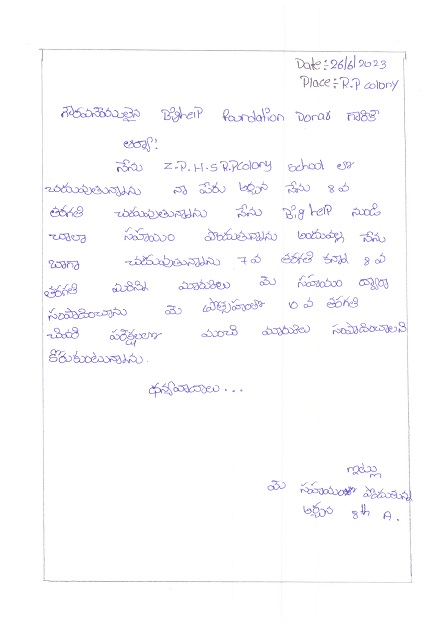 Date:- 26/6/2023
Place:- R.P colony
గౌరవనీయులైన Bighelp Foundation Donar గారికి
ఆర్యా!
నేను Z.P.H.S R.P.colony school లో
చదువుతున్నాను నా పేరు అర్చన నేను 8 వ
తరగతి చదువుతున్నాను నేను Big help నుండి
చాలా సహాయం పొందుతున్నాను అందువల్ల నేను
బాగా చదువుతున్నాను 7 వ తరగతి కన్నా 8 వ
తరగతి మార్కులు మీ సహాయం ద్వారా
సంపాదించాను మీ ప్రోత్సాహంతో 10 వ తరగతి
చివరి పరీక్షలలో మంచి మార్కులు సంపాదించాలని
కోరుకుంటున్నాను.
ధన్యవాదాలు...
ఇట్లు
మీ సహాయంతో పొందుతున్న
అర్చన 8th A.